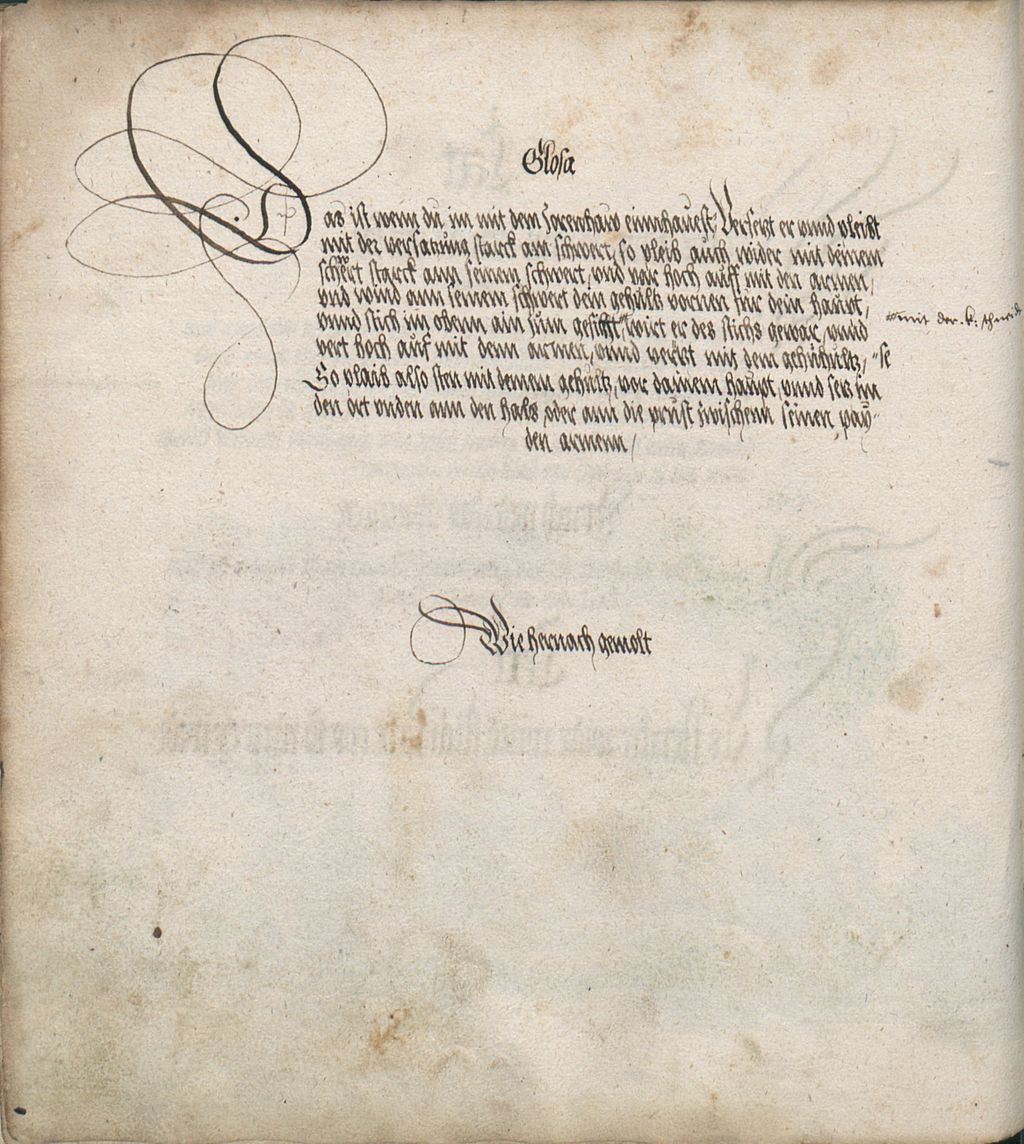 Glosa
Das ist wenn du im mit dem zorenhaw einnhauest, Versetzt er unnd pleibt
mit der versatzung starck am schwert, so pleib auch wider mit deinem
schwert starck ann seinem schwert, und var hoch auff mit den armen,
und wind ann seinem schwert dein gehultz vornen fur dein haupt,
unnd stich im obenn ain zum gesicht, wirt er des stichs gewar, unnd
vert hoch auf mit denn armen, unnd versetzt mit dem gehuhultz,
So plaib also sten mit deinem gehultz, vor dainem haupt, unnd setz im
den ort unden ann den hals oder ann die prust zwischenn seinen pay-
den armenn,
mit der .k: schneid
Wie hernach gemolt